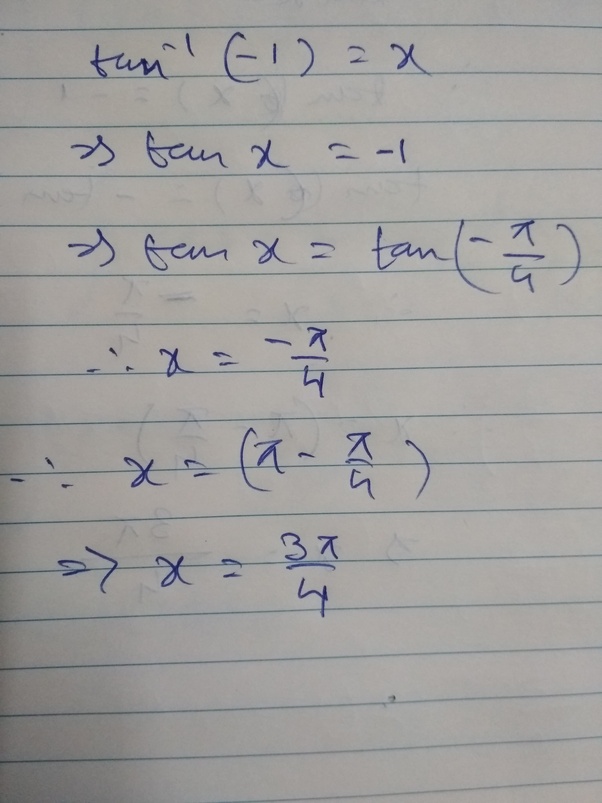 tan⁻¹ (-1) = x
⇒ tan x = -1
⇒ tan x = tan(-π/4)
∴ x = -π/4
∴ x = (π - π/4)
⇒ x = 3π/4